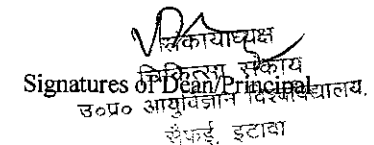 संकायाध्यक्ष
चिकित्सा संकाय
Signatures of Dean/Principal
उ०प्र० आयुर्विज्ञान विश्वविद्यालय,
सैफई, इटावा